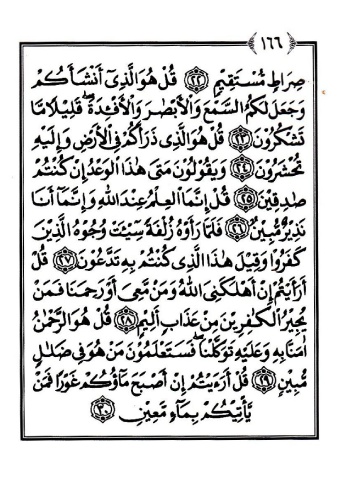 ١٦٦
صِرَاطٍ مُّسْتَقِيمٍ ٢٢ قُلْ هُوَ الَّذِىٓ أَنشَأَكُمْ
وَجَعَلَ لَكُمُ السَّمْعَ وَالْأَبْصَٰرَ وَالْأَفْـِٔدَةَ ۖ قَلِيلًا مَّا
تَشْكُرُونَ ٢٣ قُلْ هُوَ الَّذِى ذَرَأَكُمْ فِى الْأَرْضِ وَإِلَيْهِ
تُحْشَرُونَ ٢٤ وَيَقُولُونَ مَتَىٰ هَٰذَا الْوَعْدُ إِن كُنتُمْ
صَٰدِقِينَ ٢٥ قُلْ إِنَّمَا الْعِلْمُ عِندَ اللَّهِ وَإِنَّمَآ أَنَا۠
نَذِيرٌ مُّبِينٌ ٢٦ فَلَمَّا رَأَوْهُ زُلْفَةً سِيٓـَٔتْ وُجُوهُ الَّذِينَ
كَفَرُوا۟ وَقِيلَ هَٰذَا الَّذِى كُنتُم بِهِۦ تَدَّعُونَ ٢٧ قُلْ
أَرَءَيْتُمْ إِنْ أَهْلَكَنِىَ اللَّهُ وَمَن مَّعِىَ أَوْ رَحِمَنَا فَمَن
يُجِيرُ الْكَٰفِرِينَ مِنْ عَذَابٍ أَلِيمٍ ٢٨ قُلْ هُوَ الرَّحْمَٰنُ
ءَامَنَّا بِهِۦ وَعَلَيْهِ تَوَكَّلْنَا ۖ فَسَتَعْلَمُونَ مَنْ هُوَ فِى ضَلَٰلٍ
مُّبِينٍ ٢٩ قُلْ أَرَءَيْتُمْ إِنْ أَصْبَحَ مَآؤُكُمْ غَوْرًا فَمَن
يَأْتِيكُم بِمَآءٍ مَّعِينٍ ٣٠